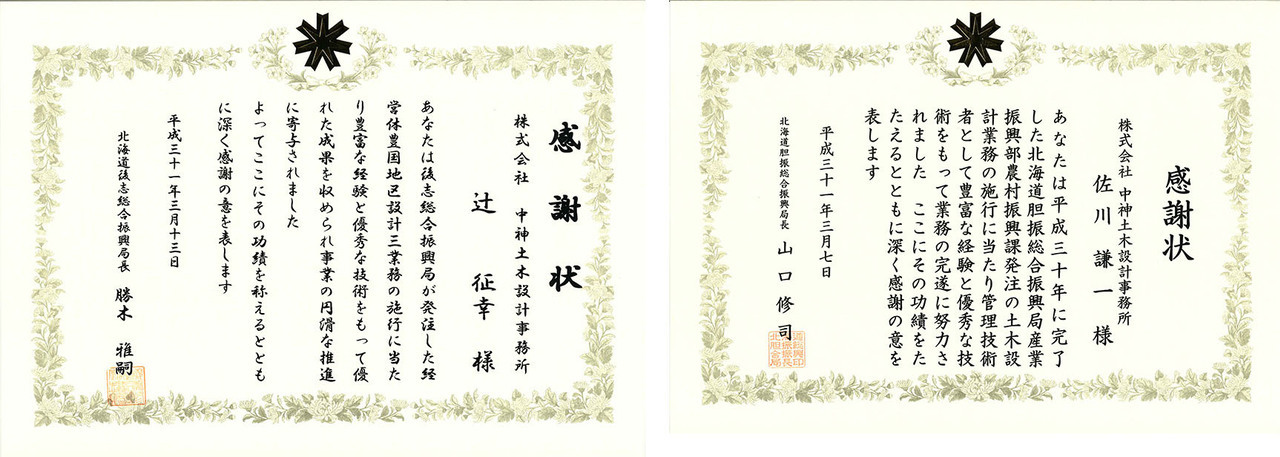 感謝状
株式会社 中神土木設計事務所
辻 征幸 様
あなたは後志総合振興局が発注した経
営体豊国地区設計三業務の施行に当た
り豊富な経験と優秀な技術をもって優
れた成果を収められ事業の円滑な推進
に寄与されました
よってここにその功績を称えるととも
に深く感謝の意を表します
平成三十一年三月十三日
北海道後志総合振興局長 勝木 雅嗣
感謝状
株式会社 中神土木設計事務所
佐川 謙一 様
あなたは平成三十年に完了
した北海道胆振総合振興局産業
振興部農村振興課発注の土木設
計業務の施行に当たり管理技術
者として豊富な経験と優秀な技
術をもって業務の完遂に努力さ
れました ここにその功績をた
たえるとともに深く感謝の意を
表します
平成三十一年三月七日
北海道胆振総合振興局長 山口 修司